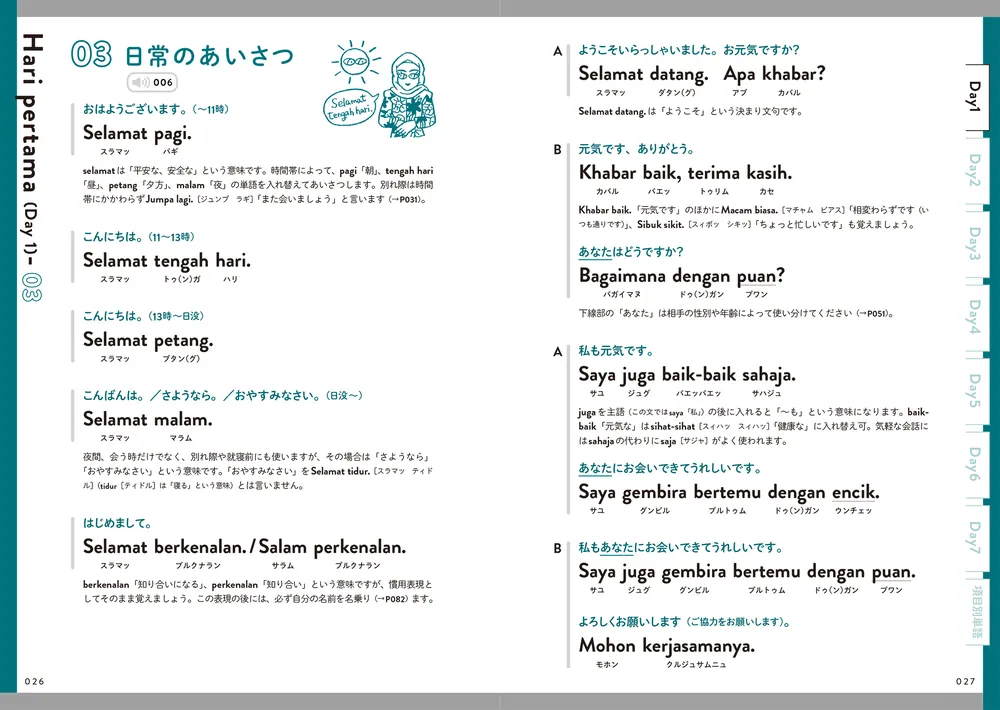 Hari pertama (Day 1)- 03
03 日常のあいさつ
006
Selamat
tengah hari.
おはようございます。(〜11時)
Selamat pagi.
スラマッ パギ
selamatは「平安な、安全な」という意味です。時間帯によって、pagi「朝」、tengah hari
「昼」、petang「夕方」、malam「夜」の単語を入れ替えてあいさつします。別れ際は時間
帯にかかわらずJumpa lagi.［ジュンプ ラギ］「また会いましょう」と言います（→P031）。
こんにちは。(11〜13時)
Selamat tengah hari.
スラマッ トゥ(ン)ガ ハリ
こんにちは。(13時〜日没)
Selamat petang.
スラマッ プタン(グ)
こんばんは。／さようなら。／おやすみなさい。(日没〜)
Selamat malam.
スラマッ マラム
夜間、会う時だけでなく、別れ際や就寝前にも使いますが、その場合は「さようなら」
「おやすみなさい」という意味です。「おやすみなさい」をSelamat tidur.［スラマッ ティド
ル］（tidur［ティドル］は「寝る」という意味）とは言いません。
はじめまして。
Selamat berkenalan. / Salam perkenalan.
スラマッ ブルクナラン サラム プルクナラン
berkenalan「知り合いになる」、perkenalan「知り合い」という意味ですが、慣用表現と
してそのまま覚えましょう。この表現の後には、必ず自分の名前を名乗り（→P082）ます。
026
A ようこそいらっしゃいました。お元気ですか？
Selamat datang. Apa khabar?
スラマッ ダタン(グ) アプ カバル
Selamat datang.は「ようこそ」という決まり文句です。
B 元気です、ありがとう。
Khabar baik, terima kasih.
カバル バエッ トゥリム カセ
Khabar baik.「元気です」のほかにMacam biasa.［マチャム ビアス］「相変わらずです（い
つも通りです）」、Sibuk sikit.［スィボッ シキッ］「ちょっと忙しいです」も覚えましょう。
あなたはどうですか？
Bagaimana dengan puan?
バガイマヌ ドゥ(ン)ガン プワン
下線部の「あなた」は相手の性別や年齢によって使い分けてください（→P051）。
A 私も元気です。
Saya juga baik-baik sahaja.
サユ ジュグ バエッバエッ サハジュ
jugaを主語（この文ではsaya「私」）の後に入れると「〜も」という意味になります。baik-
baik「元気な」はsihat-sihat［スィハッ スィハッ］「健康な」に入れ替え可。気軽な会話に
はsahajaの代わりにsaja［サジャ］がよく使われます。
あなたにお会いできてうれしいです。
Saya gembira bertemu dengan encik.
サユ グンビル ブルトゥム ドゥ(ン)ガン ウンチェッ
B 私もあなたにお会いできてうれしいです。
Saya juga gembira bertemu dengan puan.
サユ ジュグ グンビル ブルトゥム ドゥ(ン)ガン プワン
よろしくお願いします（ご協力をお願いします）。
Mohon kerjasamanya.
モホン クルジュサムニュ
Day1
Day2
Day3
Day4
Day5
Day6
Day7
項目別単語
027